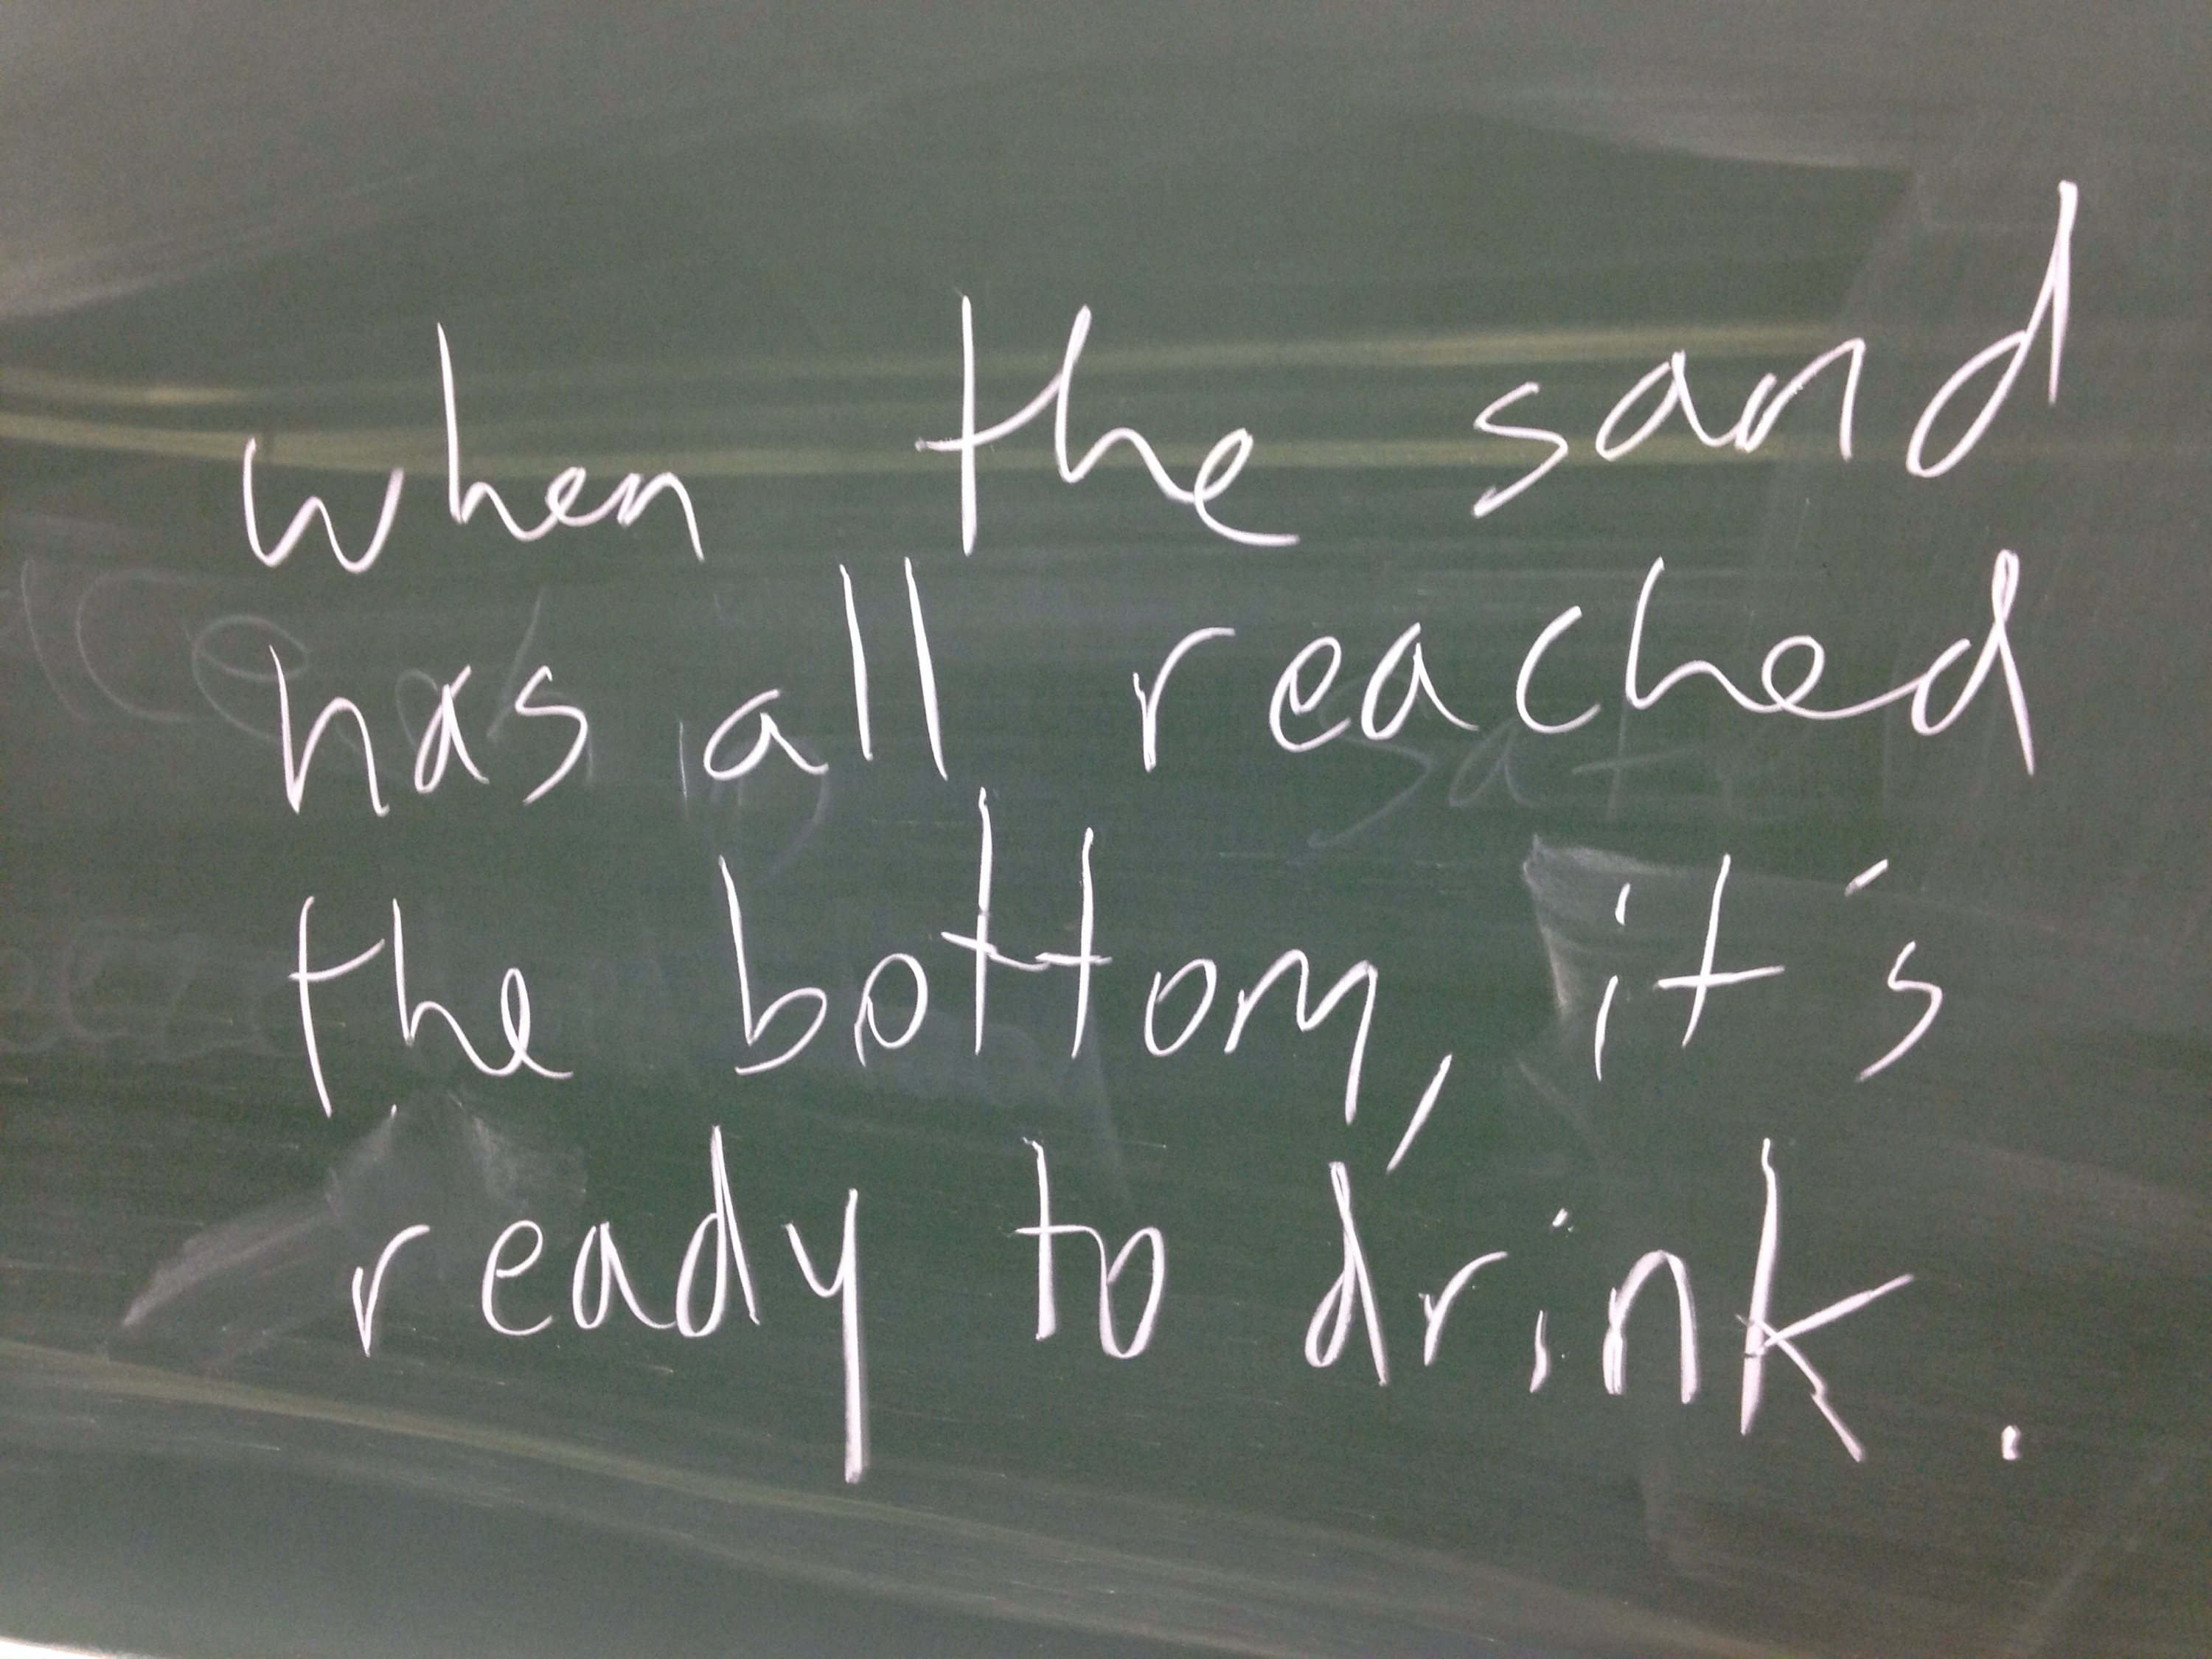 when the sand
has all reached
the bottom, it's
ready to drink.